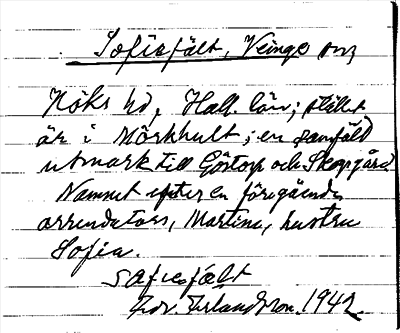 Sofiefält, Veinge sn,
Höks hd, Hall. län; stället
är i Mörkhult, en samfälld
utmark till Göstorp och Skogsgård.
Namnet efter en föregående
arrendators, Martins, hustru
Sofia.
safiesfält
Fr. Erlandsson. 1942